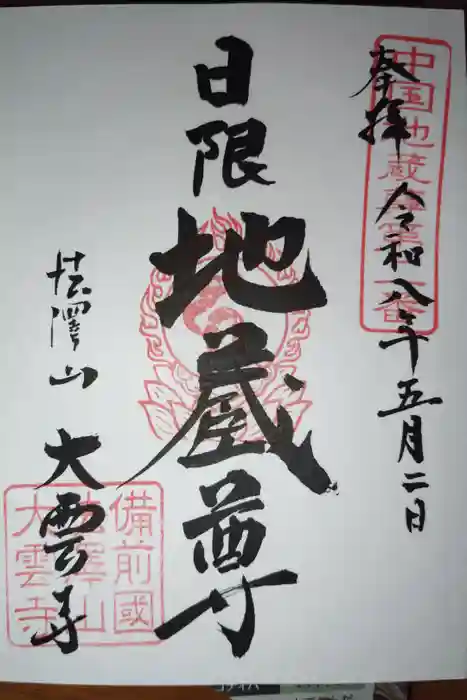 奉拝 令和八年五月二日
中国地蔵尊
一番
日限
地蔵尊
澤山 大雲寺
備前國
澤山
大雲寺